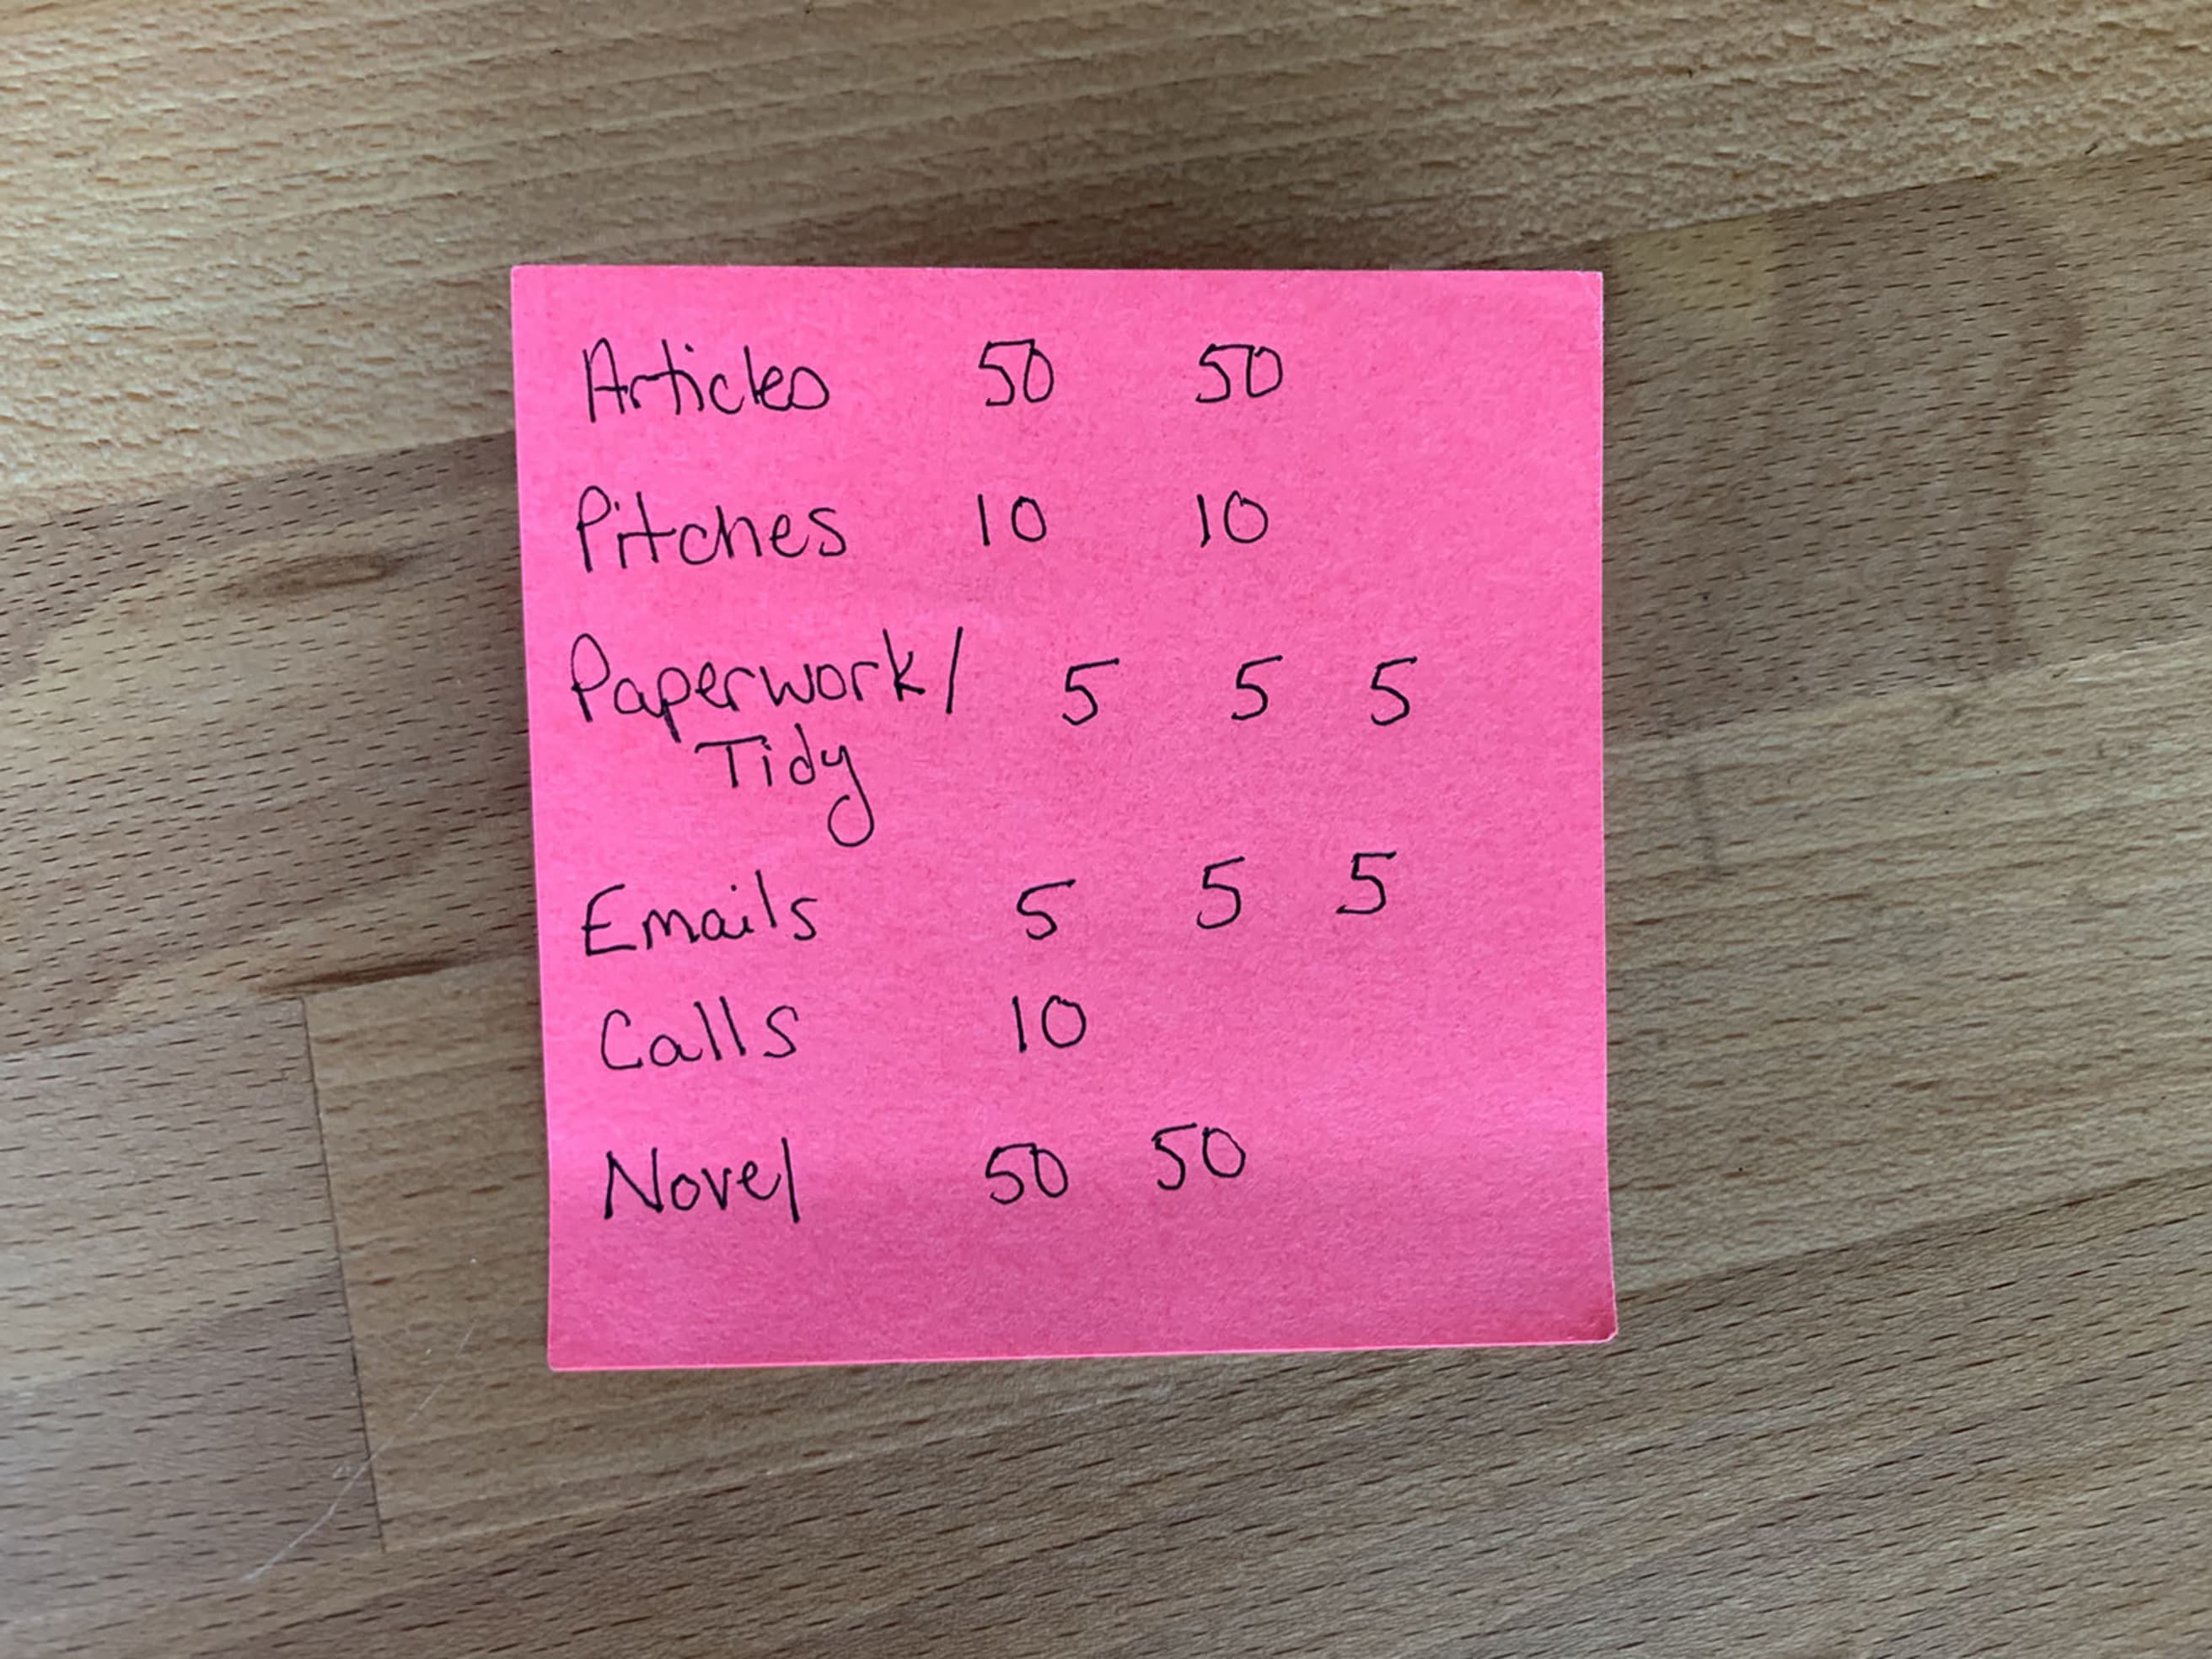 Articles 50 50
Pitches 10 10
Paperwork/ 5 5 5
Tidy
Emails 5 5 5
Calls 10
Novel 50 50